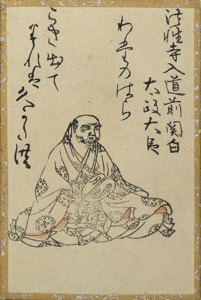 法性寺入道前関白
太政大臣
わたのはら
こき出て
みれは久かたの